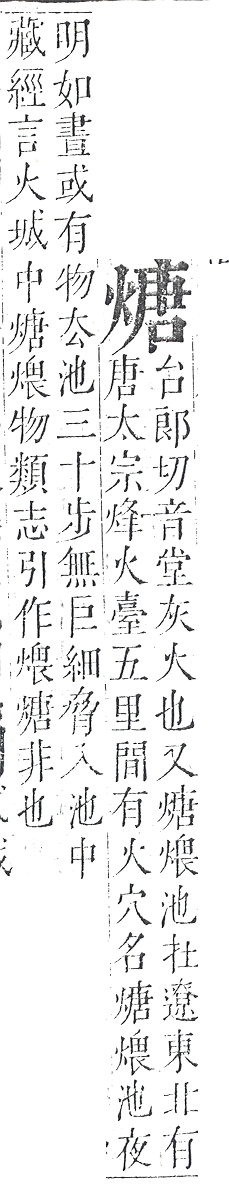 煻
台郎切音堂灰火也又煻煨池在遼東北有
唐太宗烽火臺五里間有火穴名煻煨池夜
明如晝或有物厺池三十步無巨細脅入池中
藏經言火城中煻煨物類志引作煨煻非也